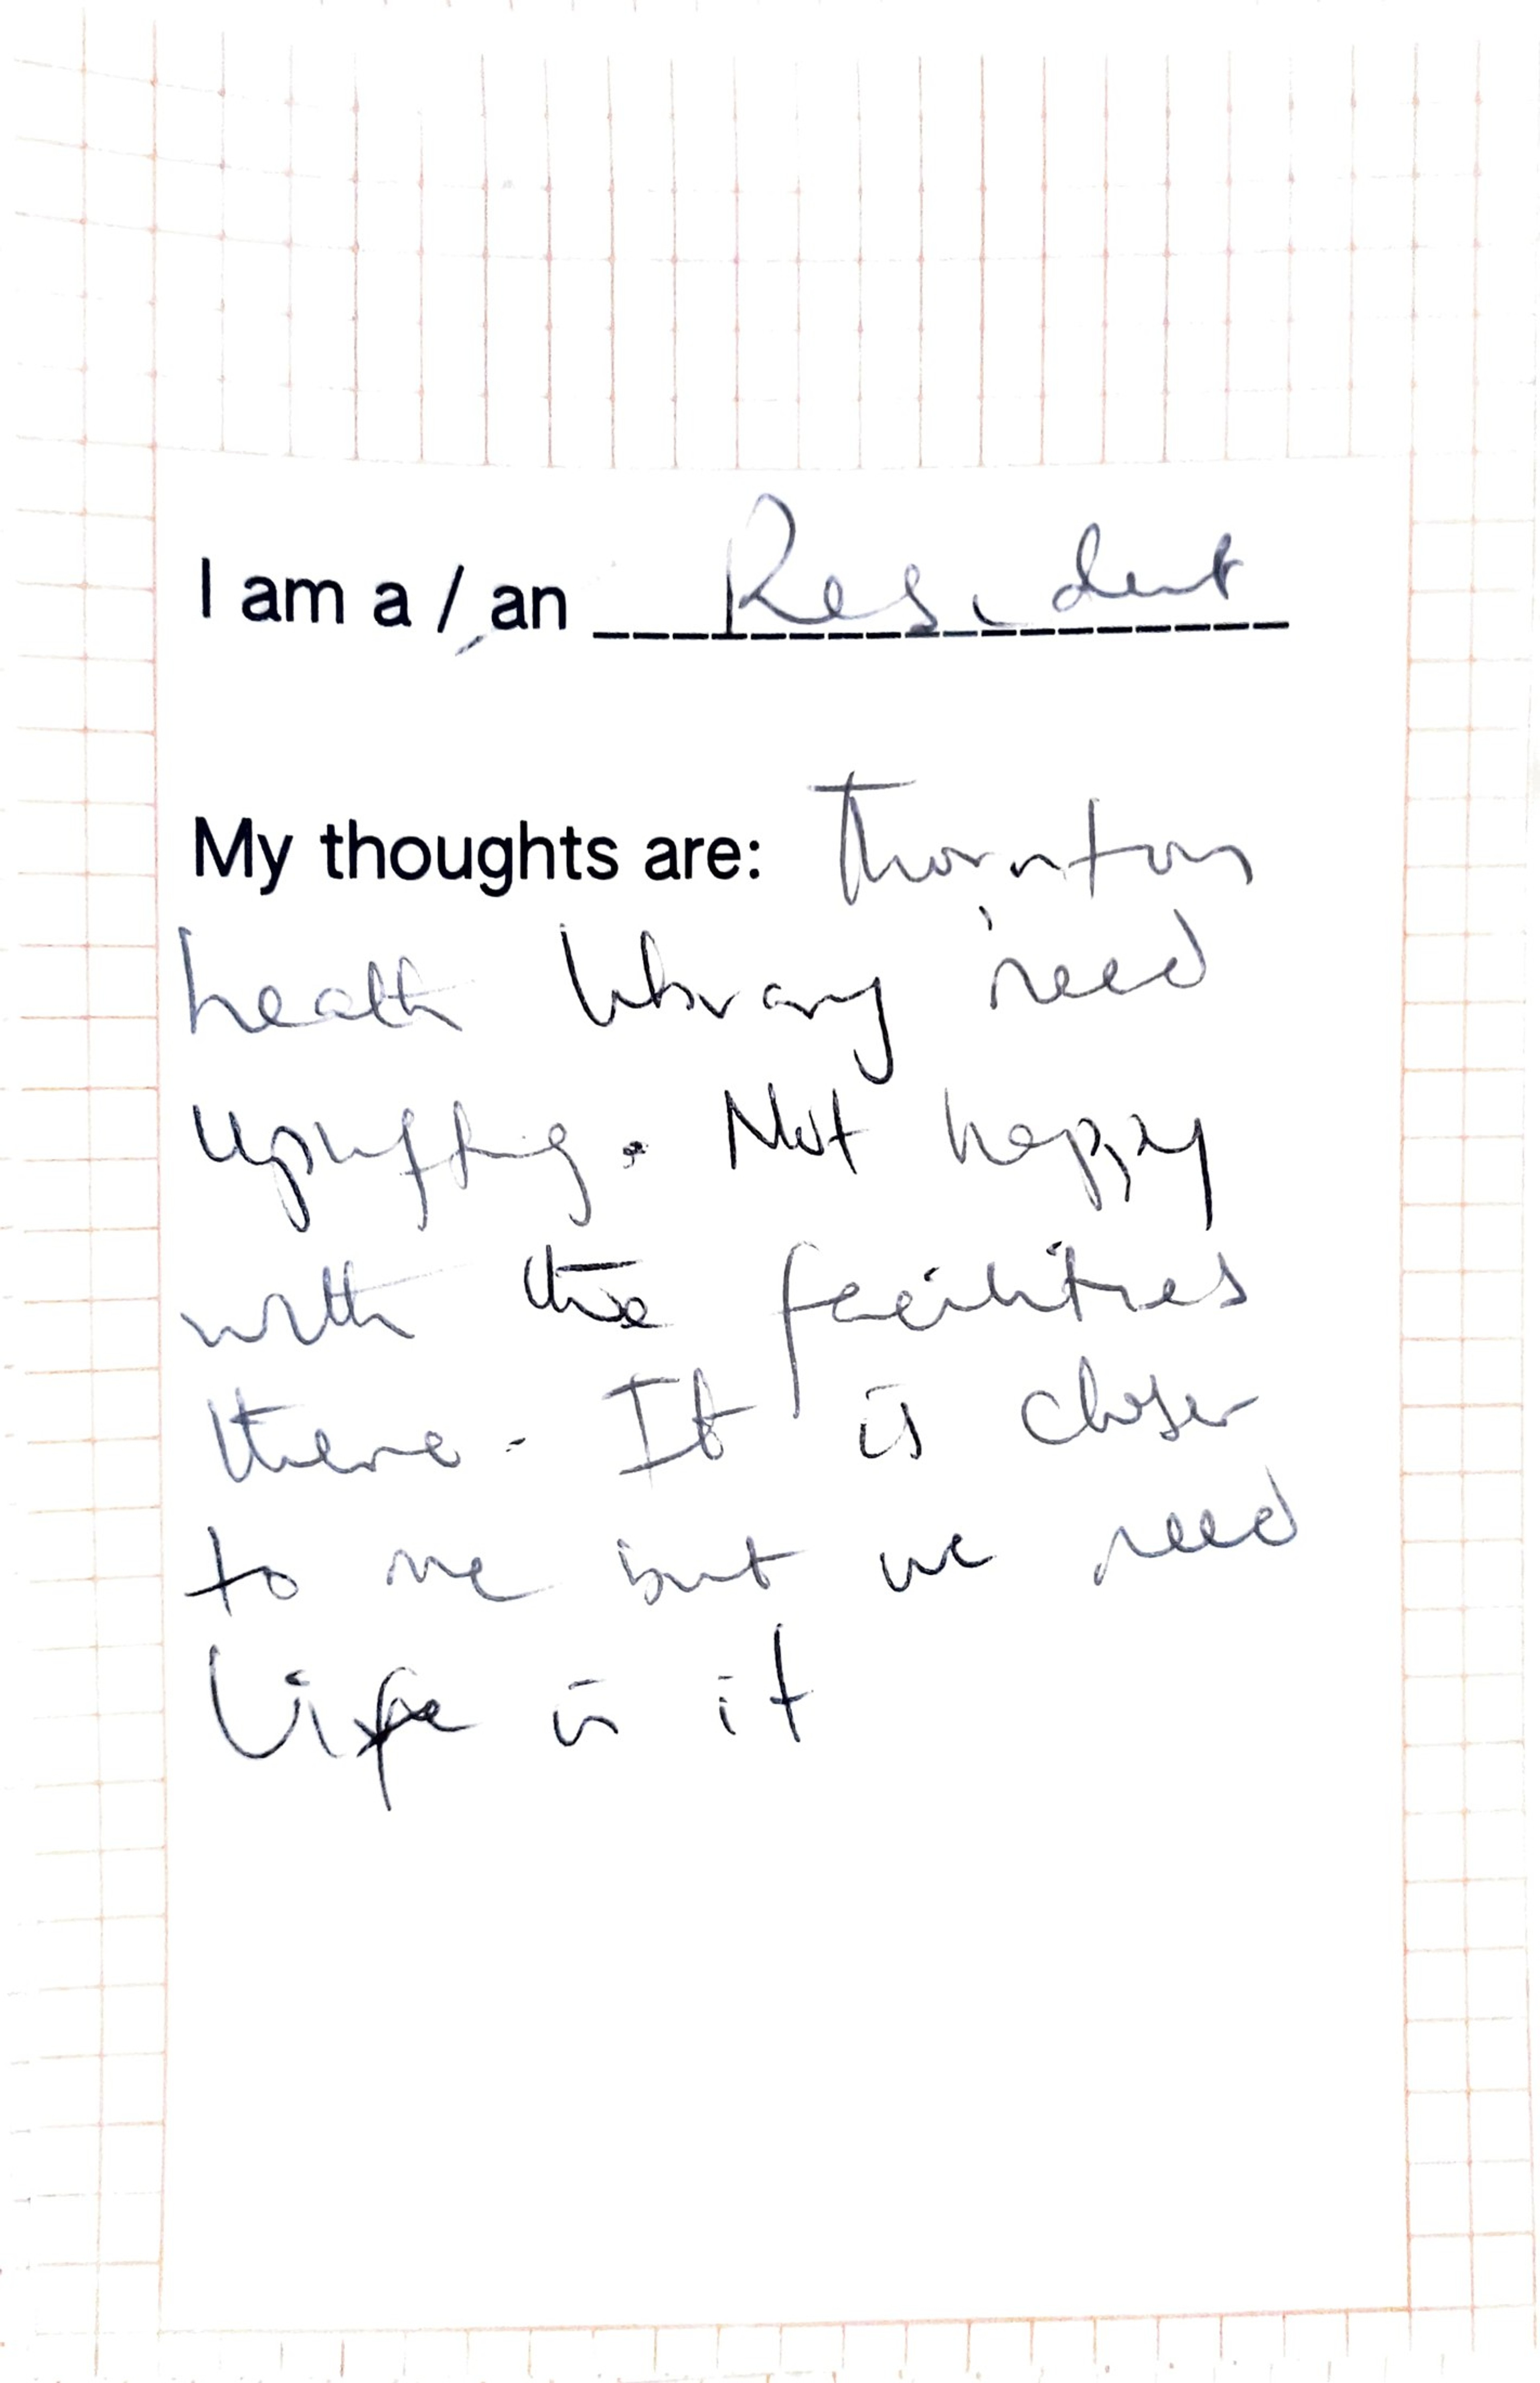 I am a / an Resident
My thoughts are: Thornton
heath library need
uplifting. Not happy
with the facilities
there. It is closer
to me but we need
life in it